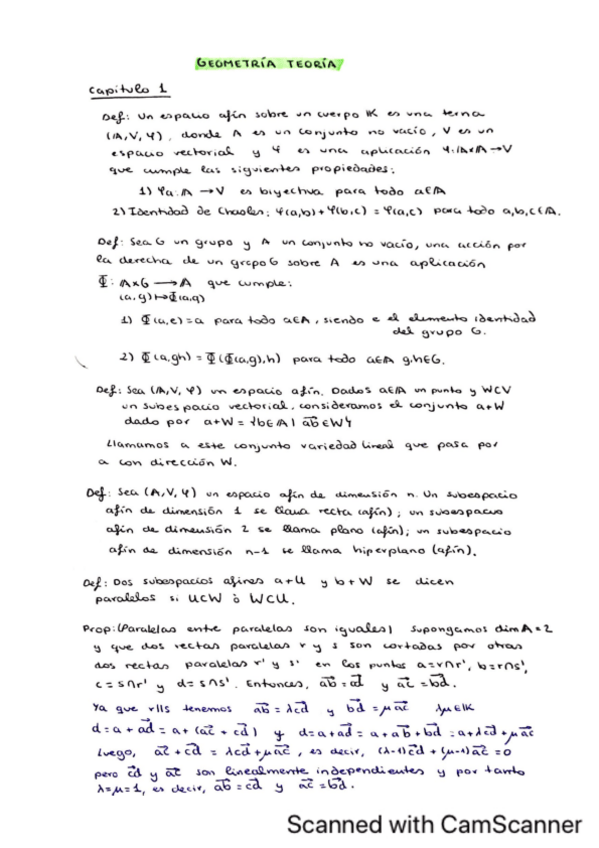 GEOMETRÍA TEORÍA
Capitulo 1
Def: Un espacio afín sobre un cuerpo K es una terna
(A,V,φ), donde A es un conjunto no vacío, V es un
espacio vectorial y φ es una aplicación φ:A×A→V
que cumple las siguientes propiedades:
1) φa:A→V es biyectiva para todo a∈A
2) Identidad de Chasles: φ(a,b)+φ(b,c) = φ(a,c) para todo a,b,c∈A.
Def: Sea G un grupo y A un conjunto no vacío, una acción por
la derecha de un grupo G sobre A es una aplicación
Φ: A×G → A que cumple:
(a,g)↦Φ(a,g)
1) Φ(a,e)=a para todo a∈A, siendo e el elemento identidad
del grupo G.
2) Φ(a,gh) = Φ(Φ(a,g),h) para todo a∈A g,h∈G.
Def: Sea (A,V,φ) un espacio afín. Dados a∈A un punto y W⊂V
un subespacio vectorial, consideramos el conjunto a+W
dado por a+W = {b∈A | ab⃗ ∈W}
Llamamos a este conjunto variedad lineal que pasa por
a con dirección W.
Def: Sea (A,V,φ) un espacio afín de dimensión n. Un subespacio
afín de dimensión 1 se llama recta (afín); un subespacio
afín de dimensión 2 se llama plano (afín); un subespacio
afín de dimensión n-1 se llama hiperplano (afín).
Def: Dos subespacios afines a+U y b+W se dicen
paralelos si U⊂W ò W⊂U.
Prop: (Paralelas entre paralelas son iguales) supongamos dim A=2
y que dos rectas paralelas r y s son cortadas por otras
dos rectas paralelas r' y s' en los puntos a=r∩r', b=r∩s',
c=s∩r' y d=s∩s'. Entonces, ab⃗ = cd⃗ y ac⃗ = bd⃗.
Ya que r||s tenemos ab⃗ = λcd⃗ y bd⃗ = μac⃗ λ,μ∈K
d = a + ad⃗ = a + (ac⃗ + cd⃗) y d = a + ad⃗ = a + ab⃗ + bd⃗ = a + λcd⃗ + μac⃗
Luego, ac⃗ + cd⃗ = λcd⃗ + μac⃗, es decir, (λ-1)cd⃗ + (μ-1)ac⃗ = 0
pero cd⃗ y ac⃗ son linealmente independientes y por tanto
λ=μ=1, es decir, ab⃗ = cd⃗ y ac⃗ = bd⃗.
Scanned with CamScanner